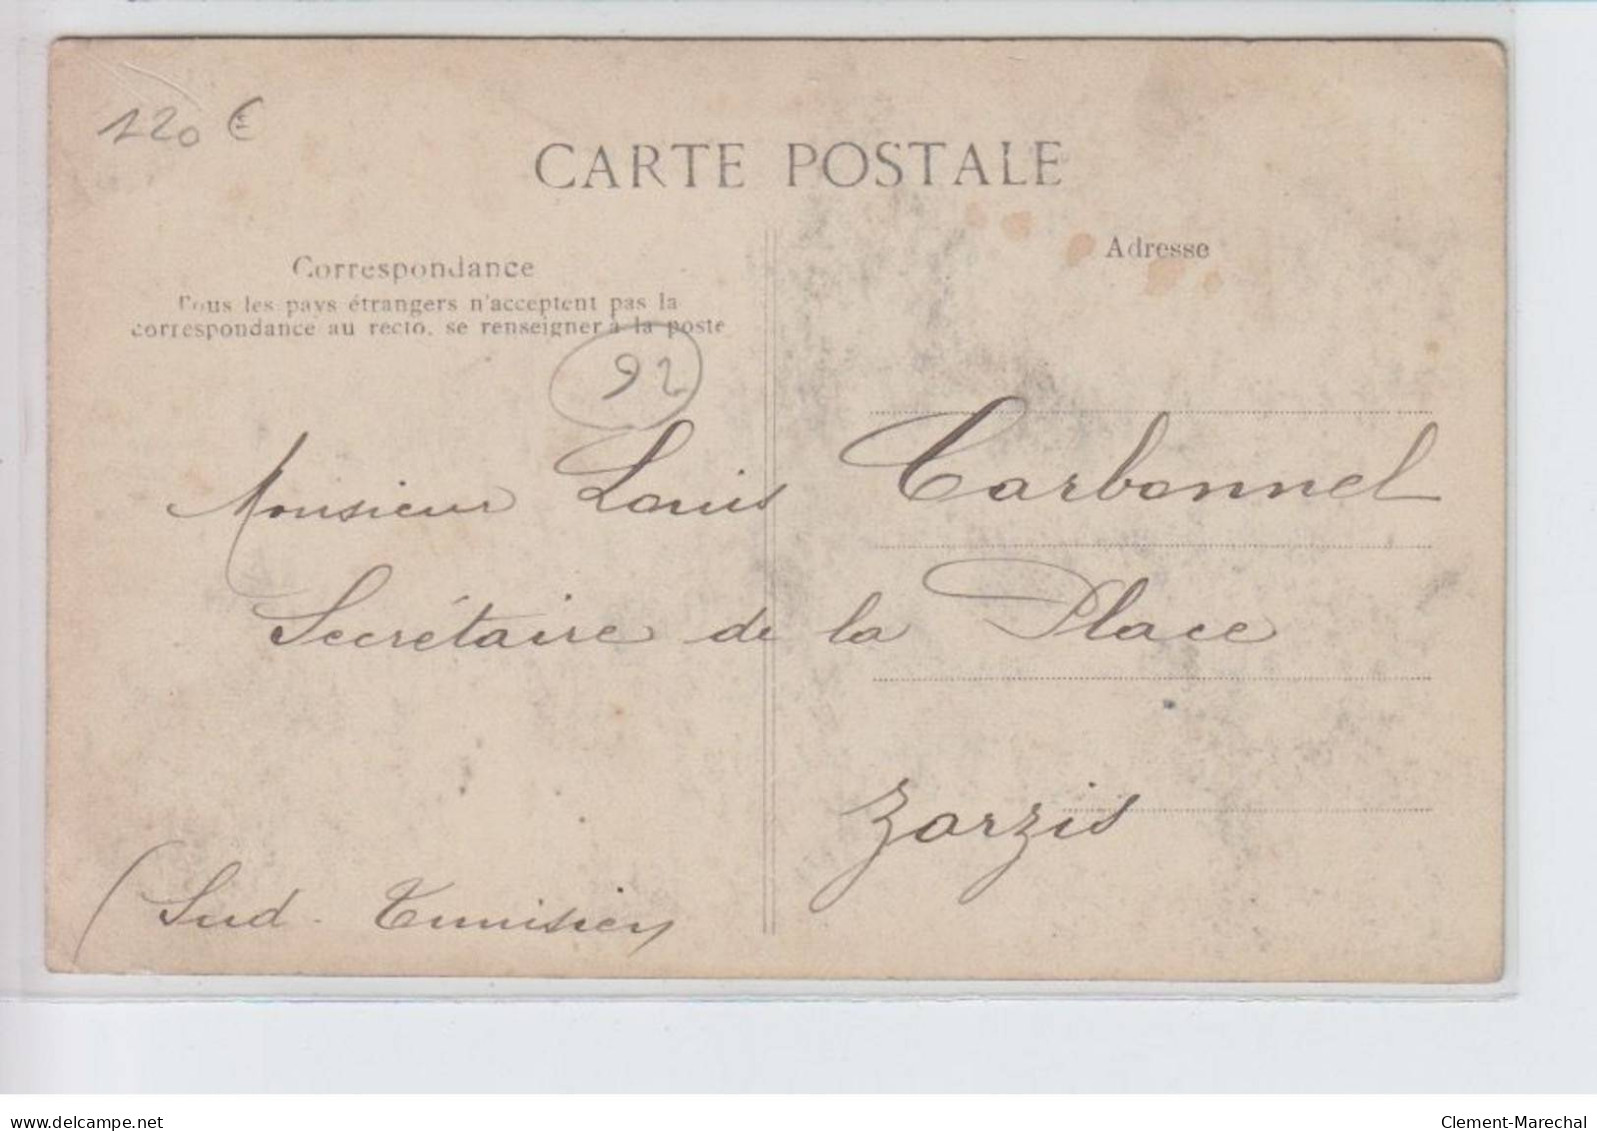 120 €
CARTE POSTALE
Correspondance
Tous les pays étrangers n'acceptent pas la
correspondance au recto, se renseigner à la poste
Adresse
92
Monsieur Louis Carbonnel
Secrétaire de la Place
Zarzis
(Sud-Tunisien
delcampe.net
Clement-Marechal